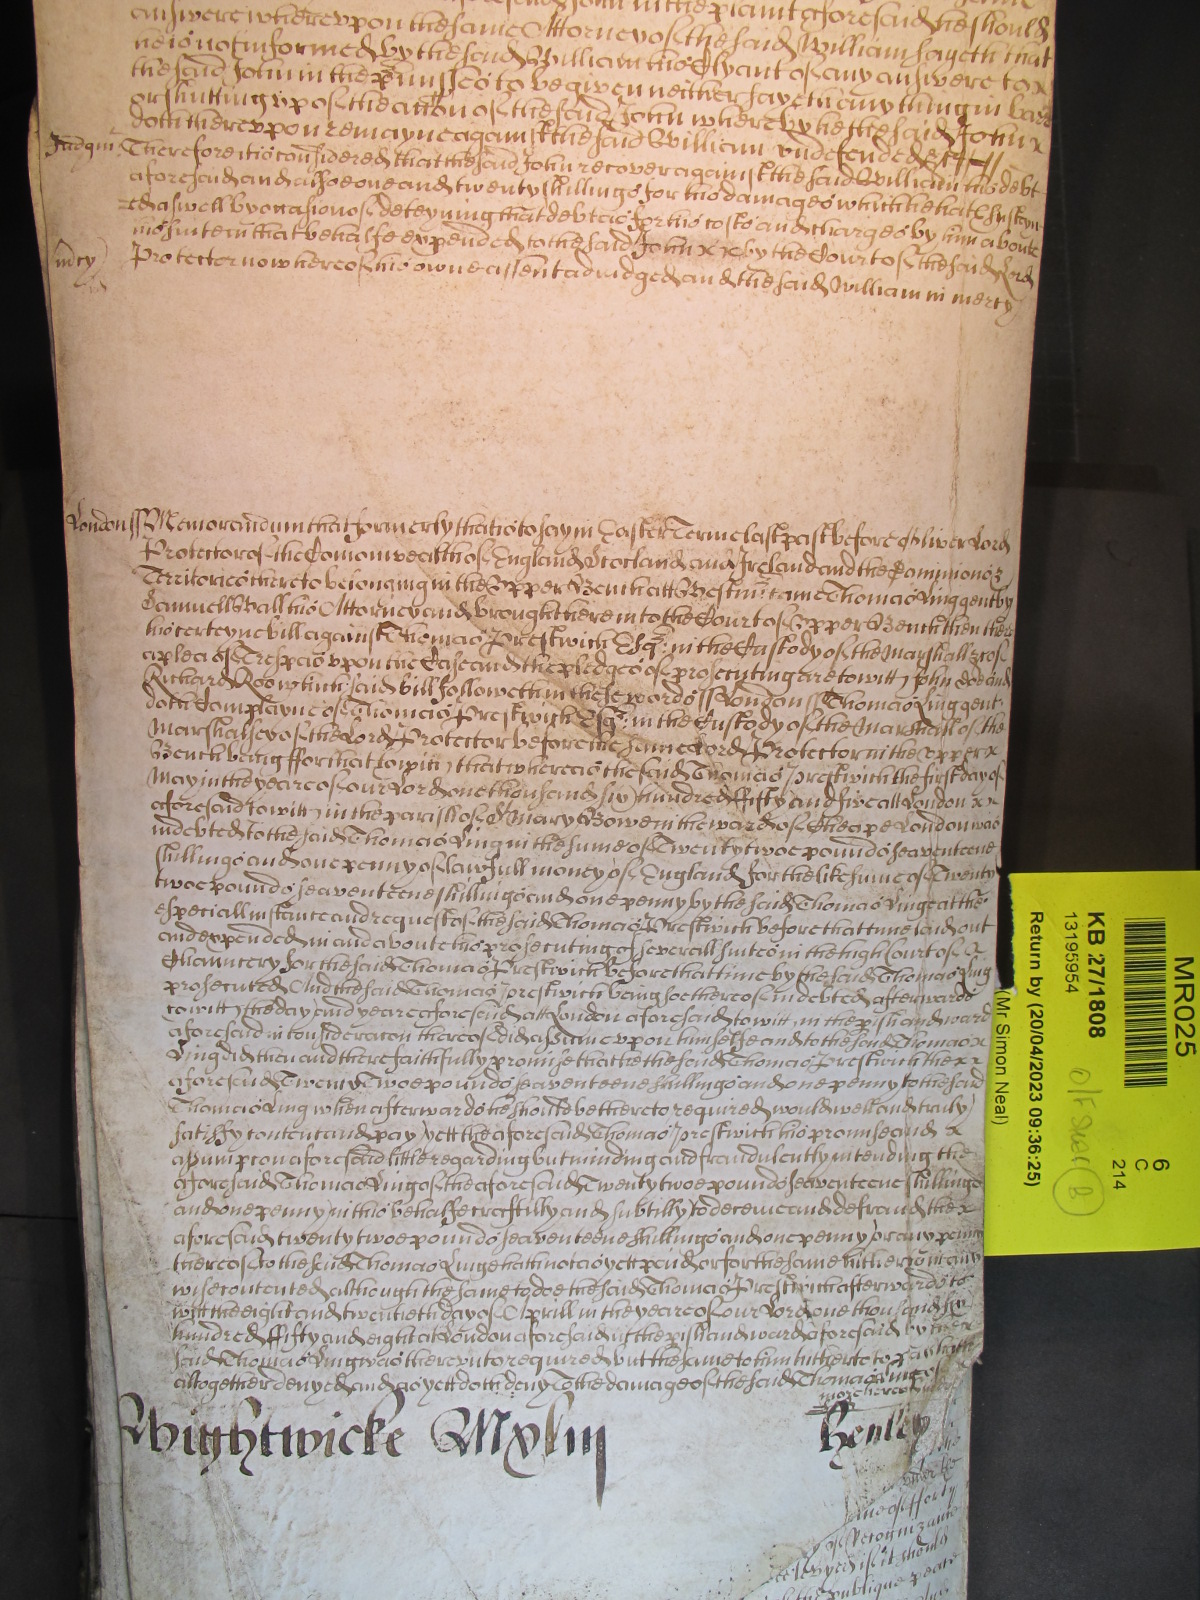 answere whereupon the same Attorney of the said William sayeth that
he is not informed by the said William his Clyant of any answere to x
the said John in the p̱misses to be given neither sayeth any thing in barr
or shutting vp of the action of the said John whereby he the said John x
doth therevpon remayne against the said William vndefended &c
Judgmt Therefore it is considered that the said John recover against the said William his debt
aforesaid and alsoe one and twenty shillings for his damages which he hath Sustayn
ed aswell by occasion of deteyning that debt as for his costs and charges by him aboute
his suite in that behalfe expended to the said John x x by the Court of the said Lord
mcy Protector now here of his owne assent adiudged and the said William in mercy
London ss Memorandum that formerly that is to say in Easter Terme last past before Oliver Lord
Protector of the Comonwealth of England Scotland and Ireland and the Dominions &
Territories thereto belonging in the Vpper Bench att Westmr came Thomas Ling gent by
Samuell Wall his Attorney and brought here into the Court of Vpper Bench then there
his certeyne bill against Thomas Prestwich Esqr in the Custody of the Marshall &c of
a plea of Trespas vpon the Case and the pledges of prosecuting are to witt John Doe and
Richard Roo which said bill followeth in these words ss London ss Thomas Ling gent
doth Complayne of Thomas Prestwich Esqr in the Custody of the Marshall of the
Marshalsey of the Lord Protector before the same Lord Protector in the vpper x
Bench being ffor that to witt that whereas the said Thomas Prestwich the first day of
May in the yeare of our Lord one thousand six hundred fifty and five att London x x
aforesaid to witt in the parish of St Mary Bowe in the ward of Cheape London was
indebted to the said Thomas Ling in the sume of Twenty twoe pounds seaventeene
shillings and one penny of lawfull money of England for the like sume of Twenty
twoe pounds seaventeene shillings and one penny by the said Thomas Linge at the
especiall instance and request of the said Thomas Prestwich before that time laid out
and expended in and aboute his prosecuting of severall suites in the high Court of x
Chauncery for the said Thomas Prestwich before that time by the said Thomas Ling
prosecuted And the said Thomas Prestwich being soe thereof indebted afterwards
to witt the day and yeare aforesaid att London aforesaid to witt in the pish and ward
aforesaid in consideracon thereof did assume vpon himselfe and to the said Thomas x
Ling did then and there faithfully promise that he the said Thomas Prestwich the x x
aforesaid Twenty Twoe pounds seaventeene shillings and one penny to the said
Thomas Ling when afterwards he should be thereto required would well and truly
satisfy content and pay yett the aforesaid Thomas Prestwich his promise and x
assumpcon aforesaid little regarding but minding and fraudulently intending the
aforesaid Thomas Ling of the aforesaid Twenty twoe pounds seaventeene shillings
and one penny in this behalfe craftily and subtilly to deceive and defraud the x
aforesaid twenty twoe pounds seaventeene shillings and one penny or any penny
thereof to the said Thomas Linge hath not as yett paid or for the same hitherto in any
wise contented although the same to doe the said Thomas Prestwich afterwards to
witt the eight and twentieth day of Aprill in the yeare of our Lord one thousand six
hundred fifty and eight at London aforesaid in the pish and ward aforesaid by the x
said Thomas Ling was therevnto required but the same to him hitherto to pay hath
altogether denyed and as yett doth deny To the damage of the said Thomas Linge of
Wightwicke Mxliij Henley
sume of fforty
of Recognizance
if it should
the publique peace
MR025
6
C
214
KB 27/1808
13195954
Return by (20/04/2023 09:36:25)
(Mr Simon Neal)
B